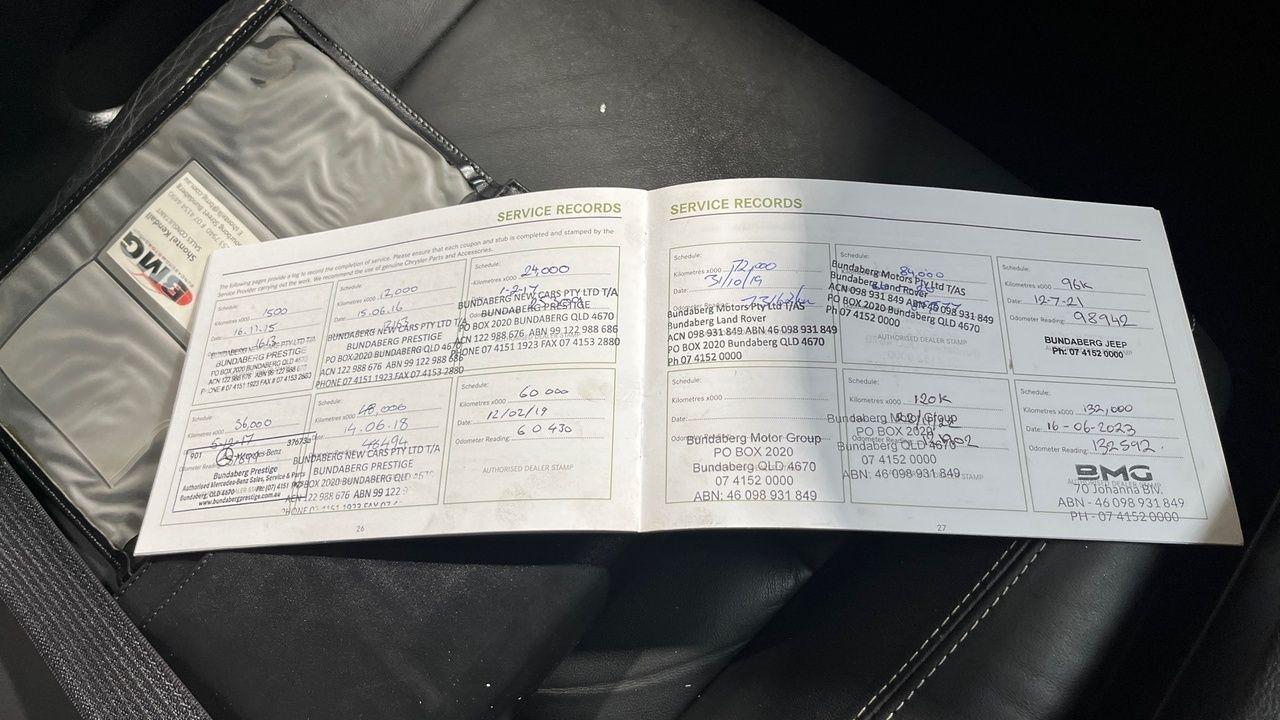 SERVICE RECORDS
The following pages provide a log to record the completion of service. Please ensure that each coupon and stub is completed and stamped by the
Service Provider carrying out the work. We recommend the use of genuine Chrysler Parts and Accessories.
Schedule:
Kilometres x000 1500
Date: 16.11.15
1613
BUNDABERG NEW CARS PTY LTD T/A
BUNDABERG PRESTIGE
PO BOX 2020 BUNDABERG QLD 4670
ACN 122 988 676 ABN 99 122 988 686
PHONE 07 4151 1923 FAX 07 4153 2880
Schedule:
Kilometres x000 12,000
Date: 15.06.16
BUNDABERG NEW CARS PTY LTD T/A
BUNDABERG PRESTIGE
PO BOX 2020 BUNDABERG QLD 4670
ACN 122 988 676 ABN 99 122 988 686
PHONE 07 4151 1923 FAX 07 4153 2880
Schedule:
Kilometres x000 24,000
BUNDABERG NEW CARS PTY LTD T/A
BUNDABERG PRESTIGE
PO BOX 2020 BUNDABERG QLD 4670
ACN 122 988 676 ABN 99 122 988 686
PHONE 07 4151 1923 FAX 07 4153 2880
Schedule:
Kilometres x000 36,000
901 Mercedes-Benz
Bundaberg Prestige
Authorised Mercedes-Benz Sales, Service & Parts
Bundaberg, QLD 4670
www.bundabergprestige.com.au
Schedule:
Kilometres x000 48,000
Date: 14.06.18
48494
BUNDABERG NEW CARS PTY LTD T/A
BUNDABERG PRESTIGE
PO BOX 2020 BUNDABERG QLD 4670
ACN 122 988 676 ABN 99 122
PHONE 07 4151 1923 FAX 07
Schedule:
Kilometres x000 60 000
Date: 12/02/19
Odometer Reading: 60 430
AUTHORISED DEALER STAMP
26
SERVICE RECORDS
Schedule:
Kilometres x000 72,000
Date: 31/10/19
Odometer Reading:
Bundaberg Motors Pty Ltd T/AS
Bundaberg Land Rover
ACN 098 931 849 ABN 46 098 931 849
PO BOX 2020 Bundaberg QLD 4670
Ph 07 4152 0000
84,000
Bundaberg Motors Pty Ltd T/AS
Bundaberg Land Rover
ACN 098 931 849 ABN 46 098 931 849
PO BOX 2020 Bundaberg QLD 4670
Ph 07 4152 0000
AUTHORISED DEALER STAMP
Schedule:
Kilometres x000 96K
Date: 12-7-21
Odometer Reading: 98942
BUNDABERG JEEP
Ph: 07 4152 0000
Schedule:
Kilometres x000
Date:
Bundaberg Motor Group
PO BOX 2020
Bundaberg QLD 4670
07 4152 0000
ABN: 46 098 931 849
Schedule:
Kilometres x000 120K
Bundaberg Motor Group
PO BOX 2020
Bundaberg QLD 4670
07 4152 0000
ABN: 46 098 931 849
Schedule:
Kilometres x000 132,000
Date: 16-06-2023
Odometer Reading: 132592
BMG
70 Johanna Blv.
ABN - 46 098 931 849
PH - 07 4152 0000
27
BMG
Shontel Kendall
SALES CONSULTANT